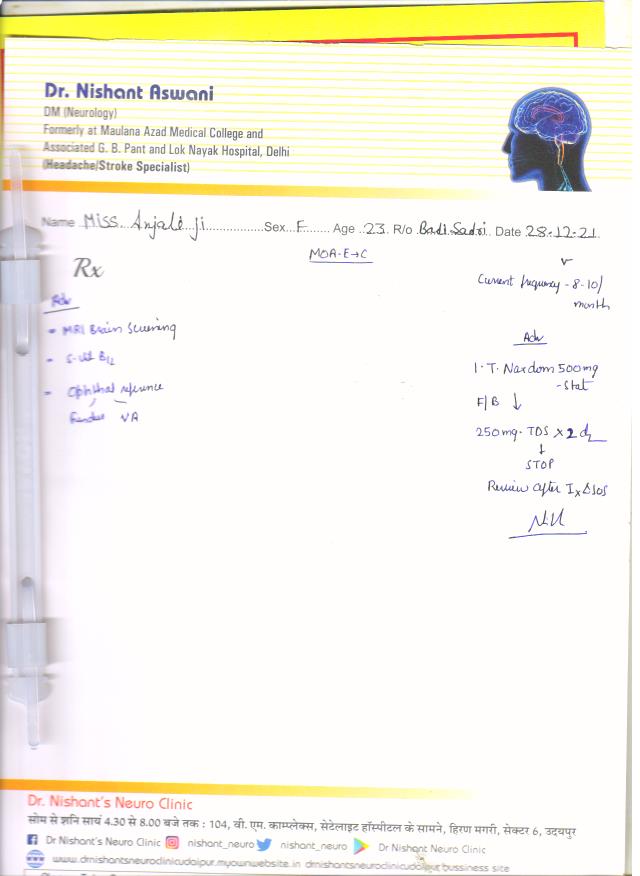 Dr. Nishant Aswani
DM (Neurology)
Formerly at Maulana Azad Medical College and
Associated G. B. Pant and Lok Nayak Hospital, Delhi
(Headache/Stroke Specialist)
Name Miss Anjali ji Sex F Age 23 R/o Badi Sadri Date 28-12-21
Rx
MOA-E→C
Adv
- MRI Brain Screening
- S. Vit B12
- Ophthal reference
Fundus VA
Current frequency - 8-10/
month
Adv
1. T. Naxdom 500mg
- stat
F/B ↓
250mg - TDS x 2 d
↓
STOP
Review after Ix & SOS
Dr. Nishant's Neuro Clinic
सोम से शनि सायं 4.30 से 8.00 बजे तक : 104, वी. एम. काम्प्लेक्स, सेटेलाइट हॉस्पीटल के सामने, हिरण मगरी, सेक्टर 6, उदयपुर
Dr Nishant's Neuro Clinic nishant_neuro nishant_neuro Dr Nishant Neuro Clinic
www.drnishantsneuroclinicudaipur.myownwebsite.in drnishantsneuroclinicudaipur.bussiness site